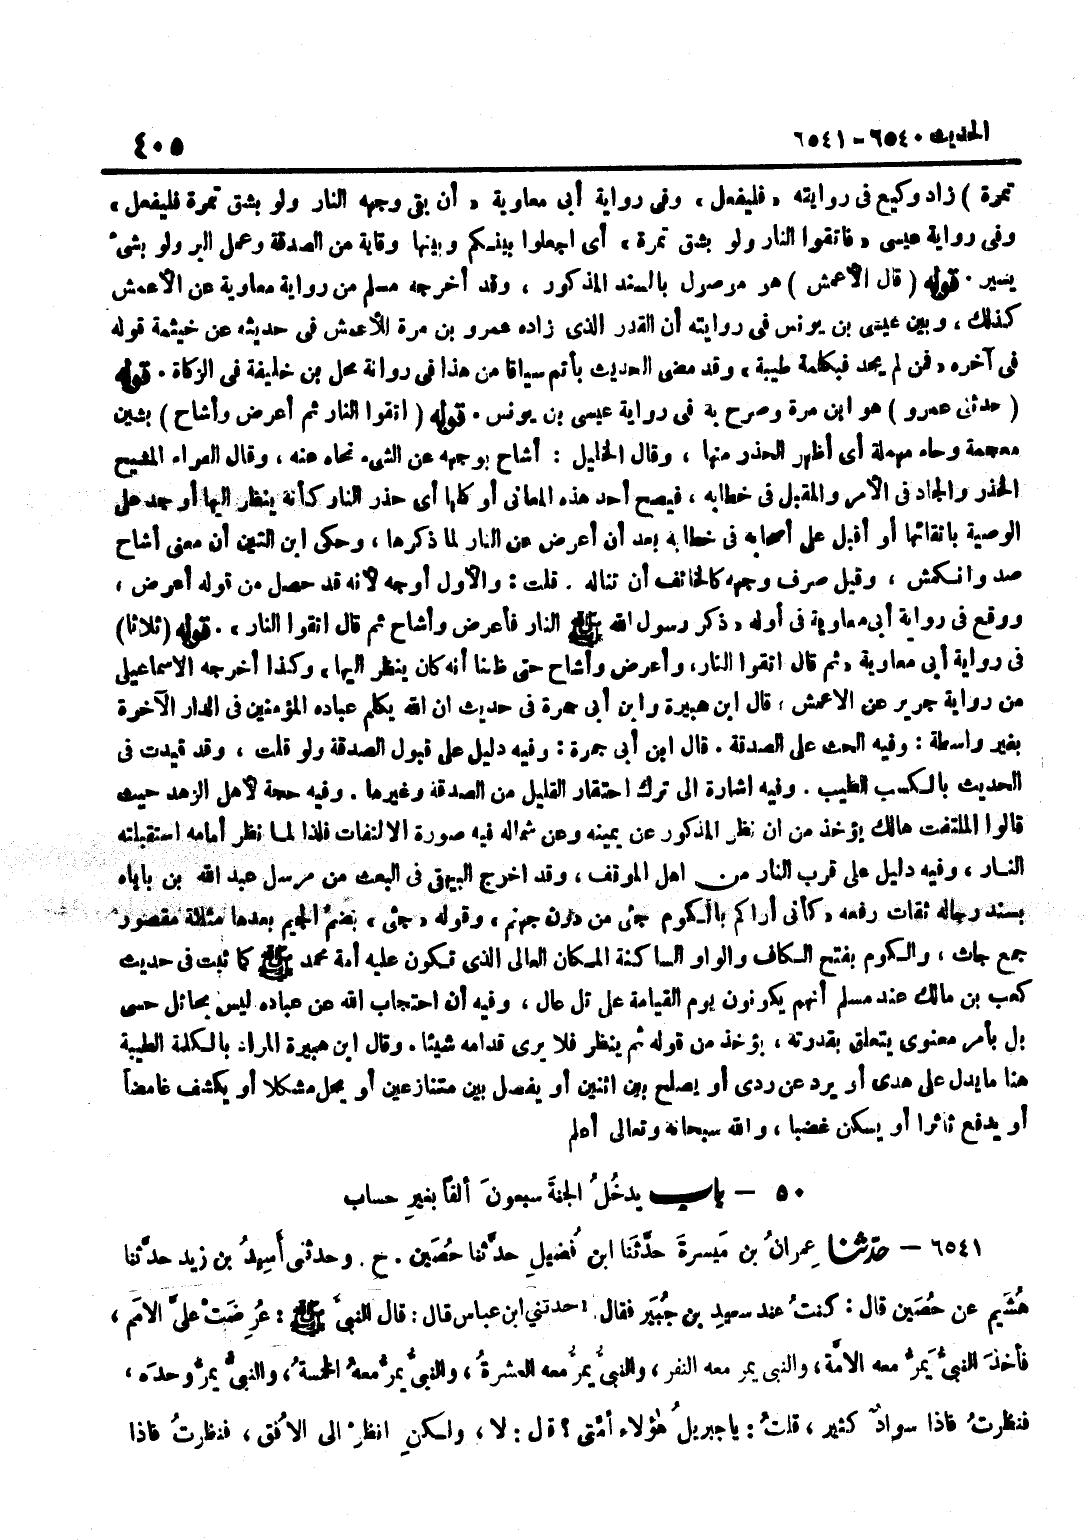 الحديث ٦٥٤٠ - ٦٥٤١ ٤٠٥
تمرة ) زاد وكيع فى روايته « فليفعل » وفى رواية أبى معاوية « أن يتقى وجهه النار ولو بشق تمرة فليفعل »
وفى رواية عيسى « فاتقوا النار ولو بشق تمرة » أى اجعلوا بينكم وبينها وقاية من الصدقة وعمل البر ولو بشىء
يسير . قوله ( قال الأعمش ) هو موصول بالسند المذكور ، وقد أخرجه مسلم من رواية معاوية عن الأعمش
كذلك ، وبين عيسى بن يونس فى روايته أن القدر الذى زاده عمرو بن مرة للأعمش فى حديثه عن خيثمة قوله
فى آخره « فمن لم يجد فبكلمة طيبة » وقد مضى الحديث بأتم سياقا من هذا فى رواية محل بن خليفة فى الزكاة . قوله
( حدثنى عمرو ) هو ابن مرة وصرح به فى رواية عيسى بن يونس . قوله ( اتقوا النار ثم أعرض وأشاح ) بشين
معجمة وحاء مهملة أى أظهر الحذر منها ، وقال الخليل : أشاح بوجهه عن الشىء نحاه عنه ، وقال الفراء المشيح
الحذر والجاد فى الأمر والمقبل فى خطابه ، فيصح أحد هذه المعانى أو كلها أى حذر النار كأنه ينظر اليها أو جد على
الوصية باتقائها أو أقبل على أصحابه فى خطابه بعد أن أعرض عن النار لما ذكرها ، وحكى ابن التين أن معنى أشاح
صد وانكمش ، وقيل صرف وجهه كالخائف أن تناله . قلت : والأول أوجه لأنه قد حصل من قوله أعرض ،
ووقع فى رواية أبى معاوية فى أوله « ذكر رسول الله ﷺ النار فأعرض وأشاح ثم قال اتقوا النار » . قوله (ثلاثا)
فى رواية أبى معاوية « ثم قال اتقوا النار، وأعرض وأشاح حتى ظننا أنه كان ينظر اليها » وكذا أخرجه الاسماعيلى
من رواية جرير عن الاعمش ؛ قال ابن هبيرة وابن أبى جمرة فى حديث ان الله يكلم عباده المؤمنين فى الدار الآخرة
بغير واسطة : وفيه الحث على الصدقة . قال ابن أبى جمرة : وفيه دليل على قبول الصدقة ولو قلت ، وقد قيدت فى
الحديث بالكسب الطيب . وفيه اشارة الى ترك احتقار القليل من الصدقة وغيرها . وفيه حجة لأهل الزهد حيث
قالوا الملتفت هالك يؤخذ من ان نظر المذكور عن يمينه وعن شماله فيه صورة الالتفات فلذا لما نظر أمامه استقبلته
النار ، وفيه دليل على قرب النار من اهل الموقف ، وقد اخرج البيهقى فى البعث من مرسل عبد الله بن باباه
بسند رجاله ثقات رفعه « كأنى أراكم بالكوم جثى من دون جهنم ، وقوله « جثى » بضم الجيم بعدها مثلثة مقصور
جمع جاث ، والكوم بفتح الكاف والواو الساكنة المكان العالى الذى تكون عليه أمة محمد ﷺ كما ثبت فى حديث
كعب بن مالك عند مسلم أنهم يكونون يوم القيامة على تل عال ، وفيه أن احتجاب الله عن عباده ليس بحائل حسى
بل بأمر معنوى يتعلق بقدرته ، يؤخذ من قوله ثم ينظر فلا يرى قدامه شيئا . وقال ابن هبيرة المراد بالكلمة الطيبة
هنا ما يدل على هدى أو يرد عن ردى أو يصلح بين اثنين أو يفصل بين متنازعين أو يحل مشكلا أو يكشف غامضاً
أو يدفع ثائرا أو يسكن غضبا ، والله سبحانه وتعالى أعلم
٥٠ - باب يدخُلُ الجنةَ سبعونَ ألفاً بغيرِ حساب
٦٥٤١ - حدّثنا عِمرانُ بن مَيسرةَ حدَّثَنا ابن فُضيلٍ حدَّثنا حُصَين . ح . وحدثنى أَسِيدُ بن زيد حدَّثنا
هُشَيم عن حُصَين قال : كنتُ عند سعيدِ بن جُبَير فقال : حدثني ابن عباس قال : قال النبيُّ ﷺ : عُرِضَتْ علىَّ الامَم ،
فأخذَ النبيُّ يَمرُّ معه الامَّة، والنبى يمر معه النفر ، والنبيُّ يمرُّ معه العشرةُ ، والنبيُّ يمرُّ معهُ الخمسةُ، والنبيُّ يمرُّ وحدَه ،
فنظرتُ فاذا سوادٌ كثير ، قلتُ : ياجبريلُ هٰؤلاء أمَّتى ؟ قال : لا ، ولكنِ انظرْ الى الاُفق ، فنظرتُ فاذا